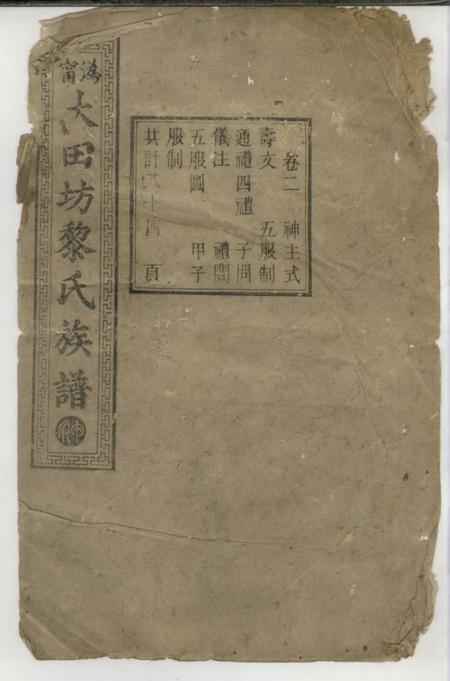 溈甯
大田坊黎氏族譜
卷二 神主式
壽文 五服制
通禮四禮 子問
儀注 禮問
五服圖 甲子
服制
共計 十四頁